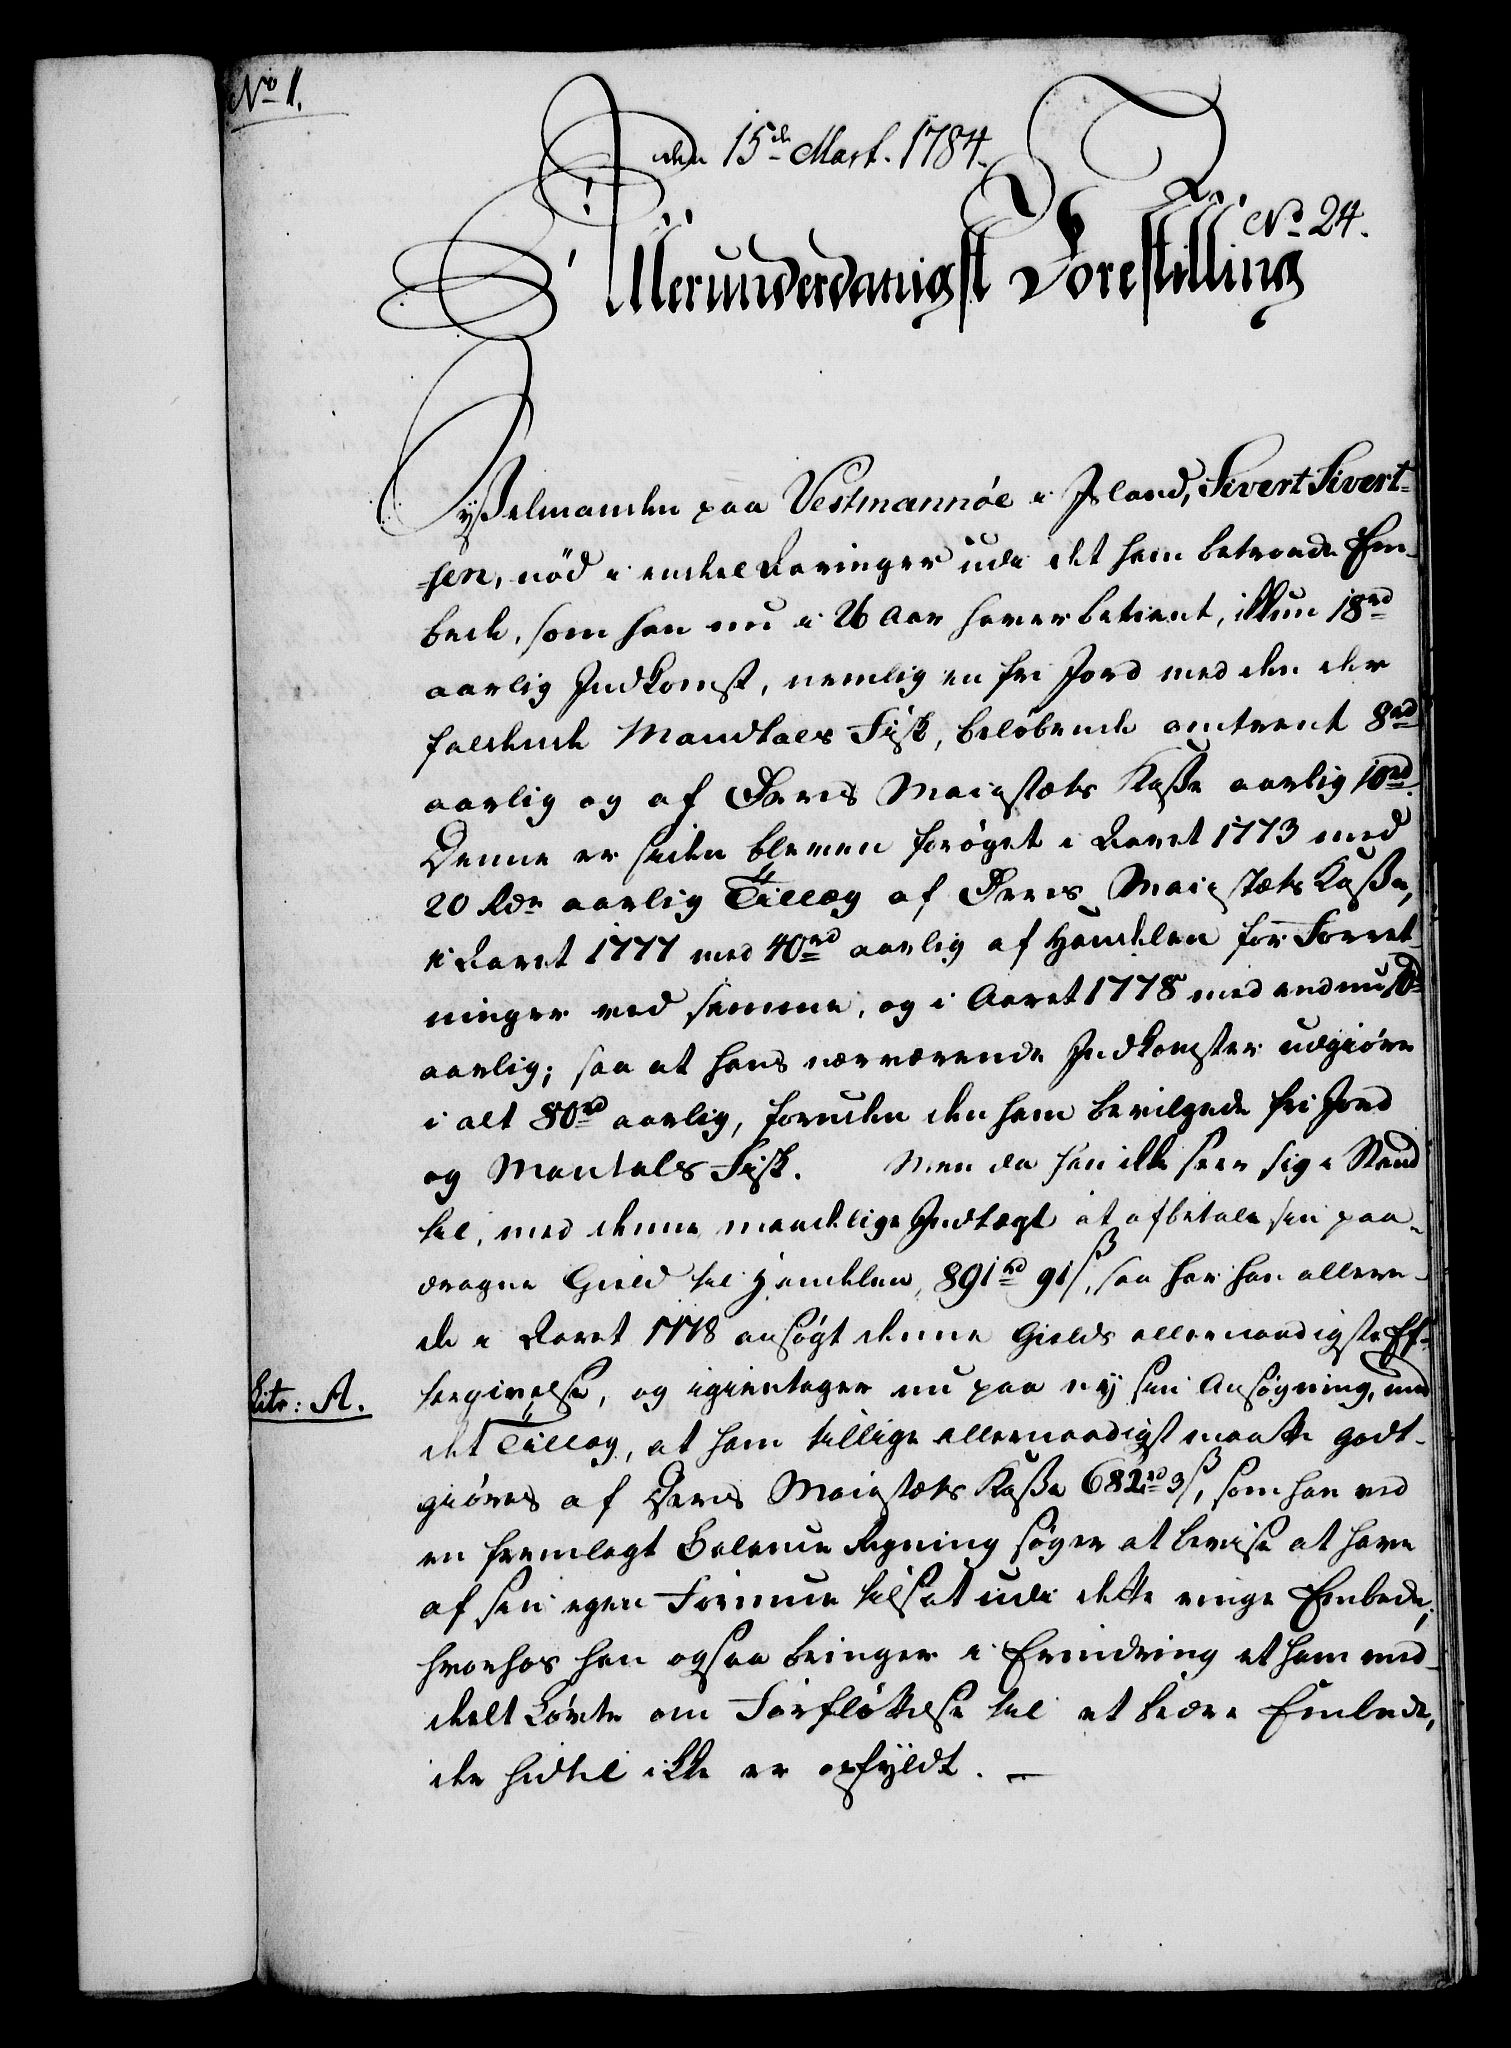 No 1.
den 15de Mart. 1784.
No 24.
Allerunderdanigst Forestilling
Sysselmanden paa Vestmannöe i Island, Sivert Sivert-
sen, nöd i endeel Aaringer udi det ham betroede Em-
bede, som han nu i 26 Aar haver betient, ikkun 18rd
aarlig Indkomst, nemlig en fri Jord med den der
faldende Mandtals Fisk, belöbende omtrent 8rd
aarlig og af Deres Maiestæts Kasse aarlig 10rd.
Denne er siden bleven forøget i Aaret 1773 med
20 Rdr aarlig Tillæg af Deres Maiestæts Kasse,
i Aaret 1777 med 40rd aarlig af Handelen for Forret-
ninger ved samme, og i Aaret 1778 med endnu 10rd
aarlig; saa at hans nærværende Indkomster udgiöre
i alt 80rd aarlig, foruden den ham bevilgede fri Jord
og Mantals Fisk. Men da han ikke seer sig i Stand
til, med denne maadelige Indtægt at afbetale sin paa-
dragne Gield til Handelen, 891rd 91ß, saa har han allere-
de i Aaret 1778 ansögt denne Gields allernaadigste Ef-
Litr: A.
tergivelse, og igientager nu paa ny sin Ansögning, med
det Tillæg, at ham tillige allernaadigst maatte godt-
giöres af Deres Maiestæts Kasse 682rd 3ß, som han ved
en fremlagt Balance Regning söger at bevise at have
af sin egen Formue tilsat udi dette ringe Embede,
hvorhos han ogsaa bringer i Erindring et ham med-
deelt Löfte om Forflöttelse til et bedre Embede,
der hidtil ikke er opfyldt. —